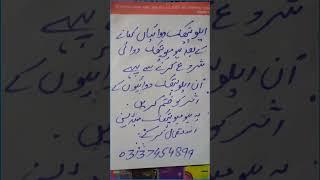 ایلوپیتھک دوائیاں کھانے
کے بعد ہومیوپیتھک دوائی
شروع کرنے سے پہلے
ان ایلوپیتھک دوائیوں کے
اثر کو ختم کریں.
یہ ہومیوپیتھک میڈیسن
استعمال کر کے
03137454899